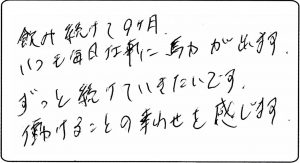 飲み続けて9ヶ月.
いつも毎日仕事に馬力が出ます.
ずっと続けていきたいです.
働けることの幸せを感じます.